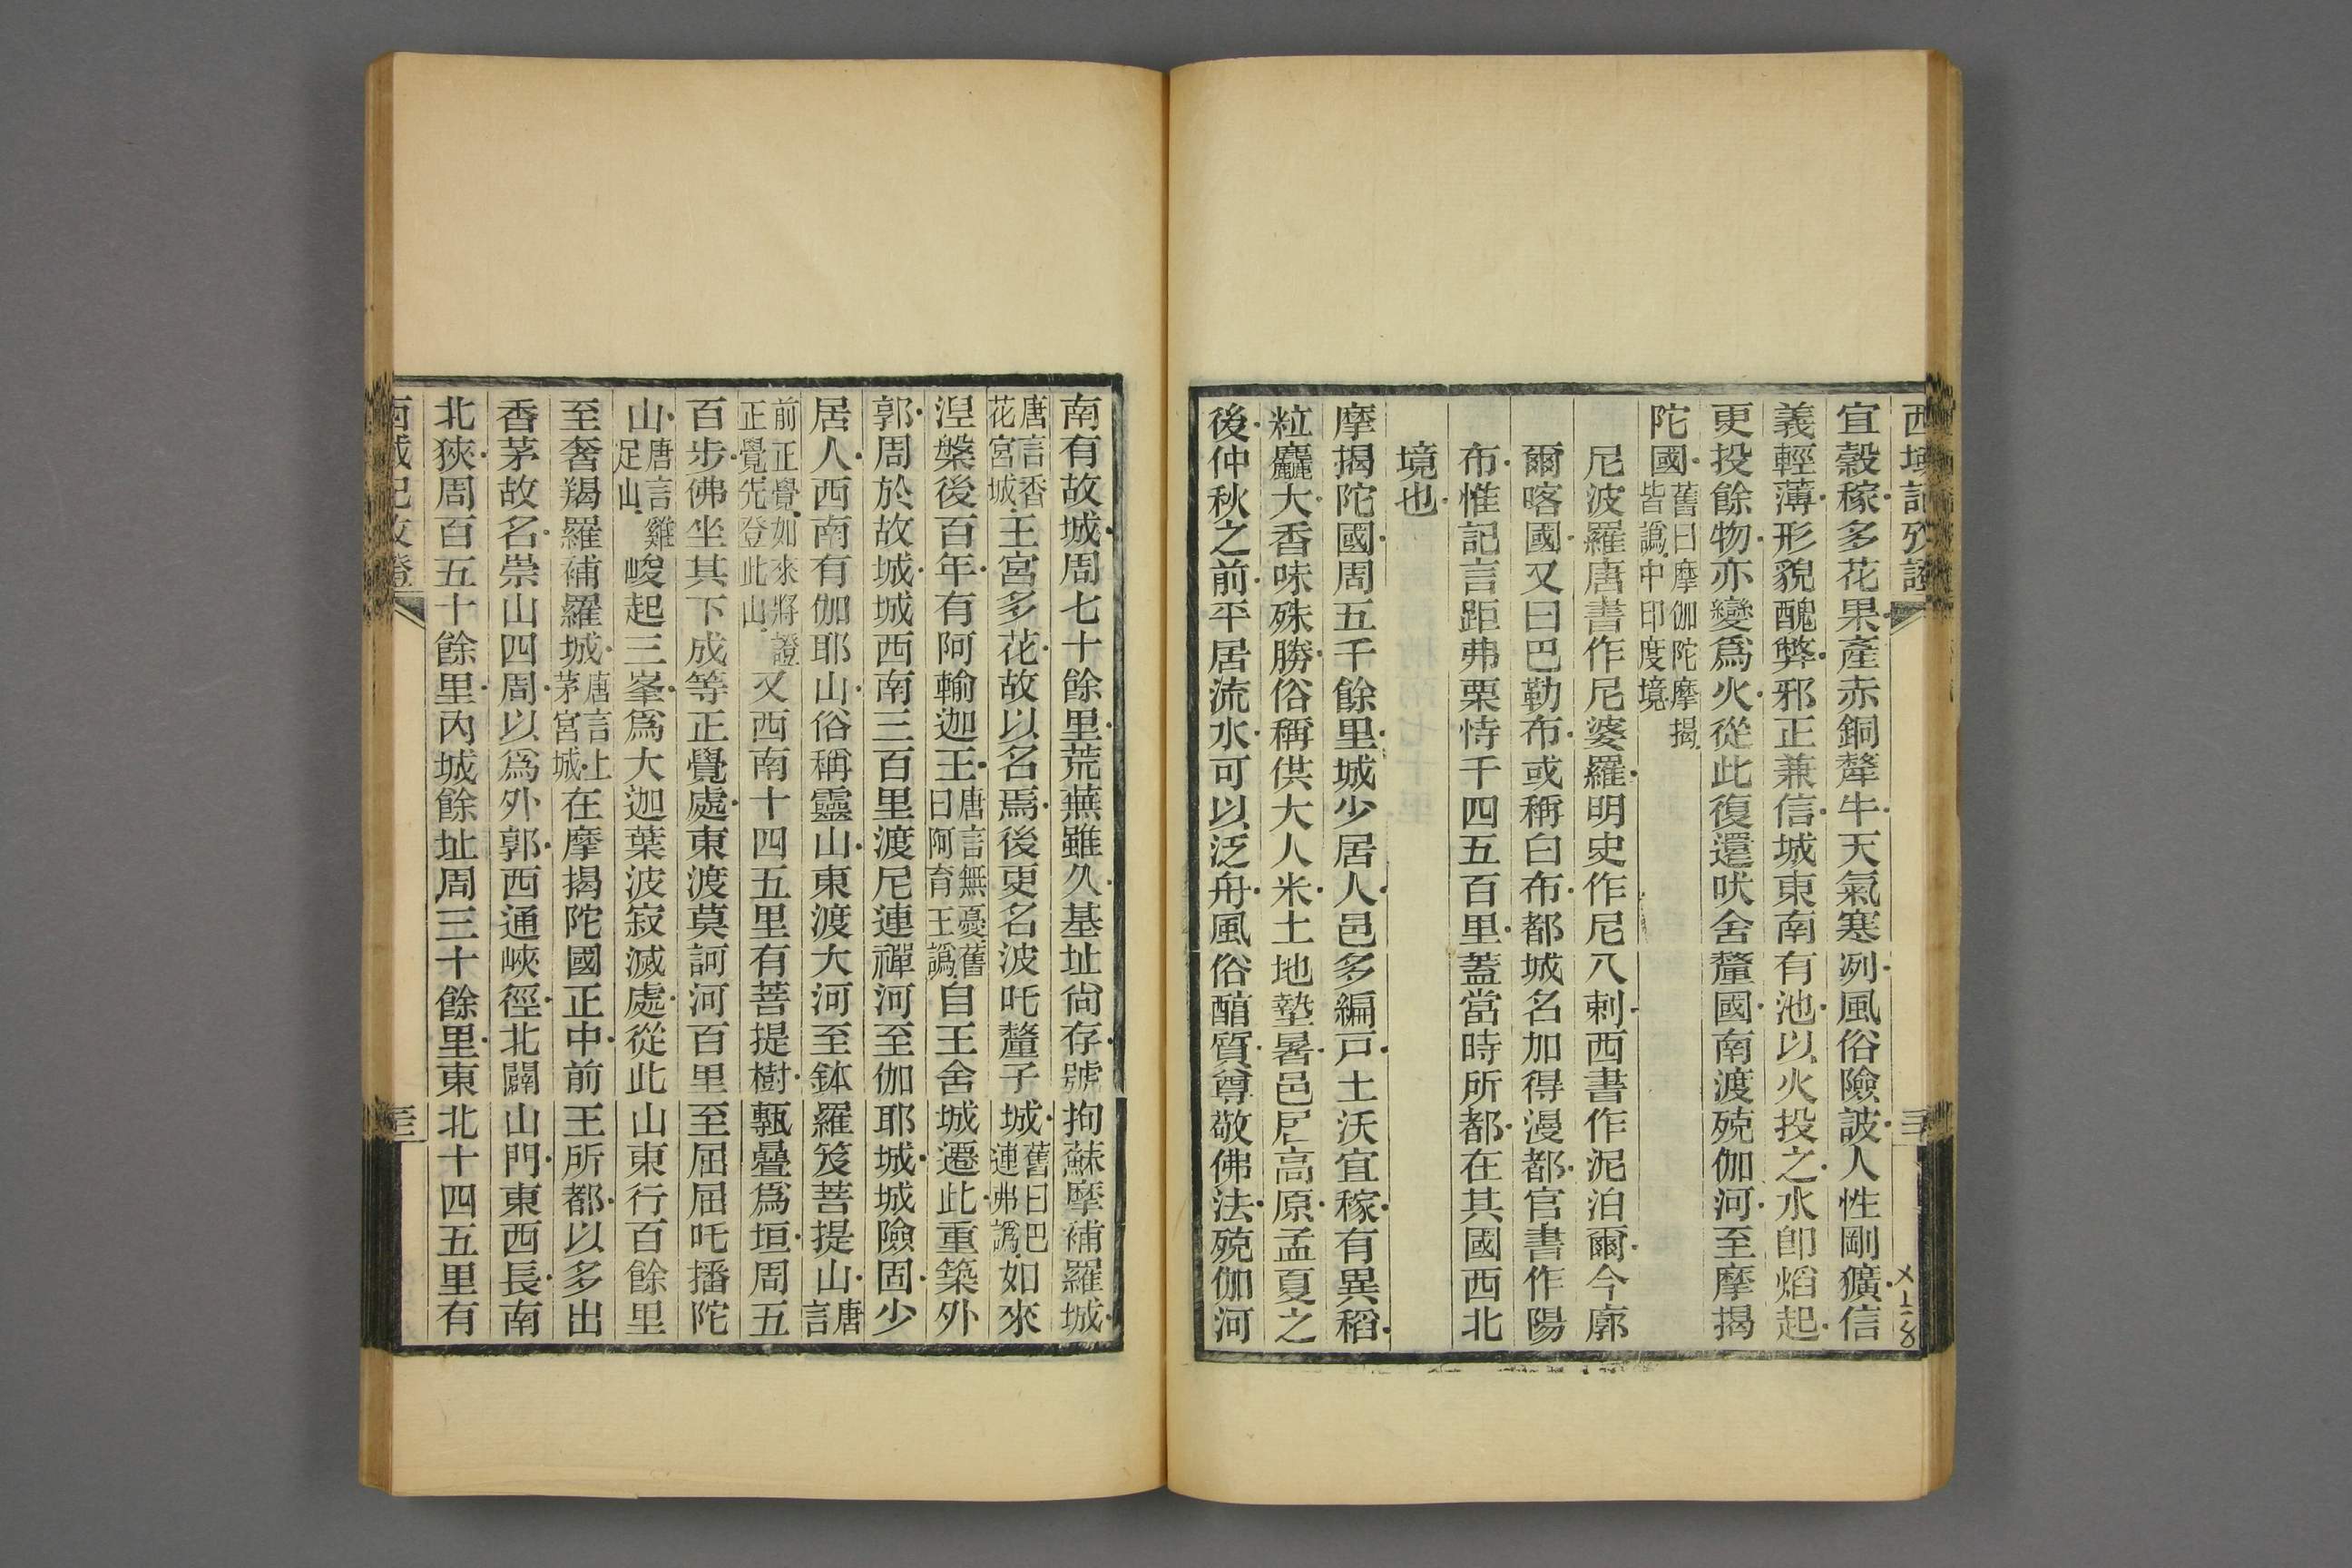 西域記攷證
宜穀稼多花果產赤銅犛牛天氣寒冽風俗險詖人性剛獷信
義輕薄形貌醜弊邪正兼信城東南有池以火投之水卽熖起
更投餘物亦變爲火從此復還吠舍釐國南渡殑伽河至摩揭
陀國舊曰摩伽陀摩揭皆譌中印度境
尼波羅唐書作尼婆羅明史作尼八剌西書作泥泊爾今廓
爾喀國又曰巴勒布或稱白布都城名加得漫都官書作陽
布惟記言距弗栗恃千四五百里蓋當時所都在其國西北
境也
摩揭陀國周五千餘里城少居人邑多編戸土沃宜稼有異稻
粒麤大香味殊勝俗稱供大人米土地墊暑邑居高原孟夏之
後仲秋之前平居流水可以泛舟風俗酳質尊敬佛法殑伽河
南有故城周七十餘里荒蕪雖久基址尙存號拘蘇摩補羅城
唐言香花宮城王宮多花故以名焉後更名波吒釐子城舊曰巴連弗譌如來
涅槃後百年有阿輸迦王唐言無憂舊曰阿育王譌自王舍城遷此重築外
郭周於故城城西南三百里渡尼連禪河至伽耶城城險固少
居人西南有伽耶山俗稱靈山東渡大河至鉢羅笈菩提山唐言
前正覺如來將證正覺先登此山又西南十四五里有菩提樹甎疊爲垣周五
百步佛坐其下成等正覺處東渡莫訶河百里至屈屈吒播陀
山唐言雞足山峻起三峯爲大迦葉波寂滅處從此山東行百餘里
至奢羯羅補羅城唐言上茅宮城在摩揭陀國正中前王所都以多出
香茅故名崇山四周以爲外郭西通峽徑北闢山門東西長南
北狹周百五十餘里內城餘址周三十餘里東北十四五里有
西域記攷證